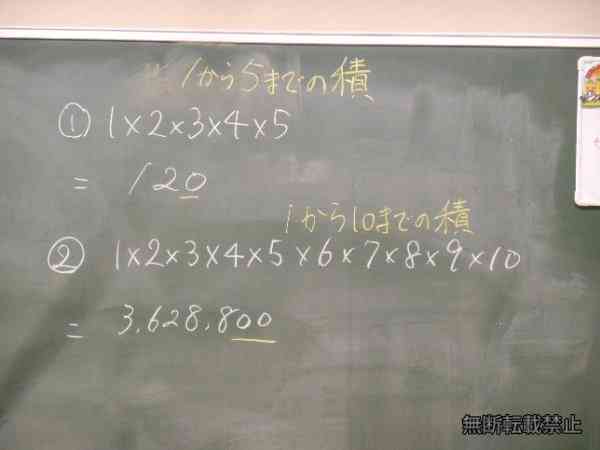 1から5までの積
① 1×2×3×4×5
= 120
1から10までの積
② 1×2×3×4×5×6×7×8×9×10
= 3,628,800
無断転載禁止